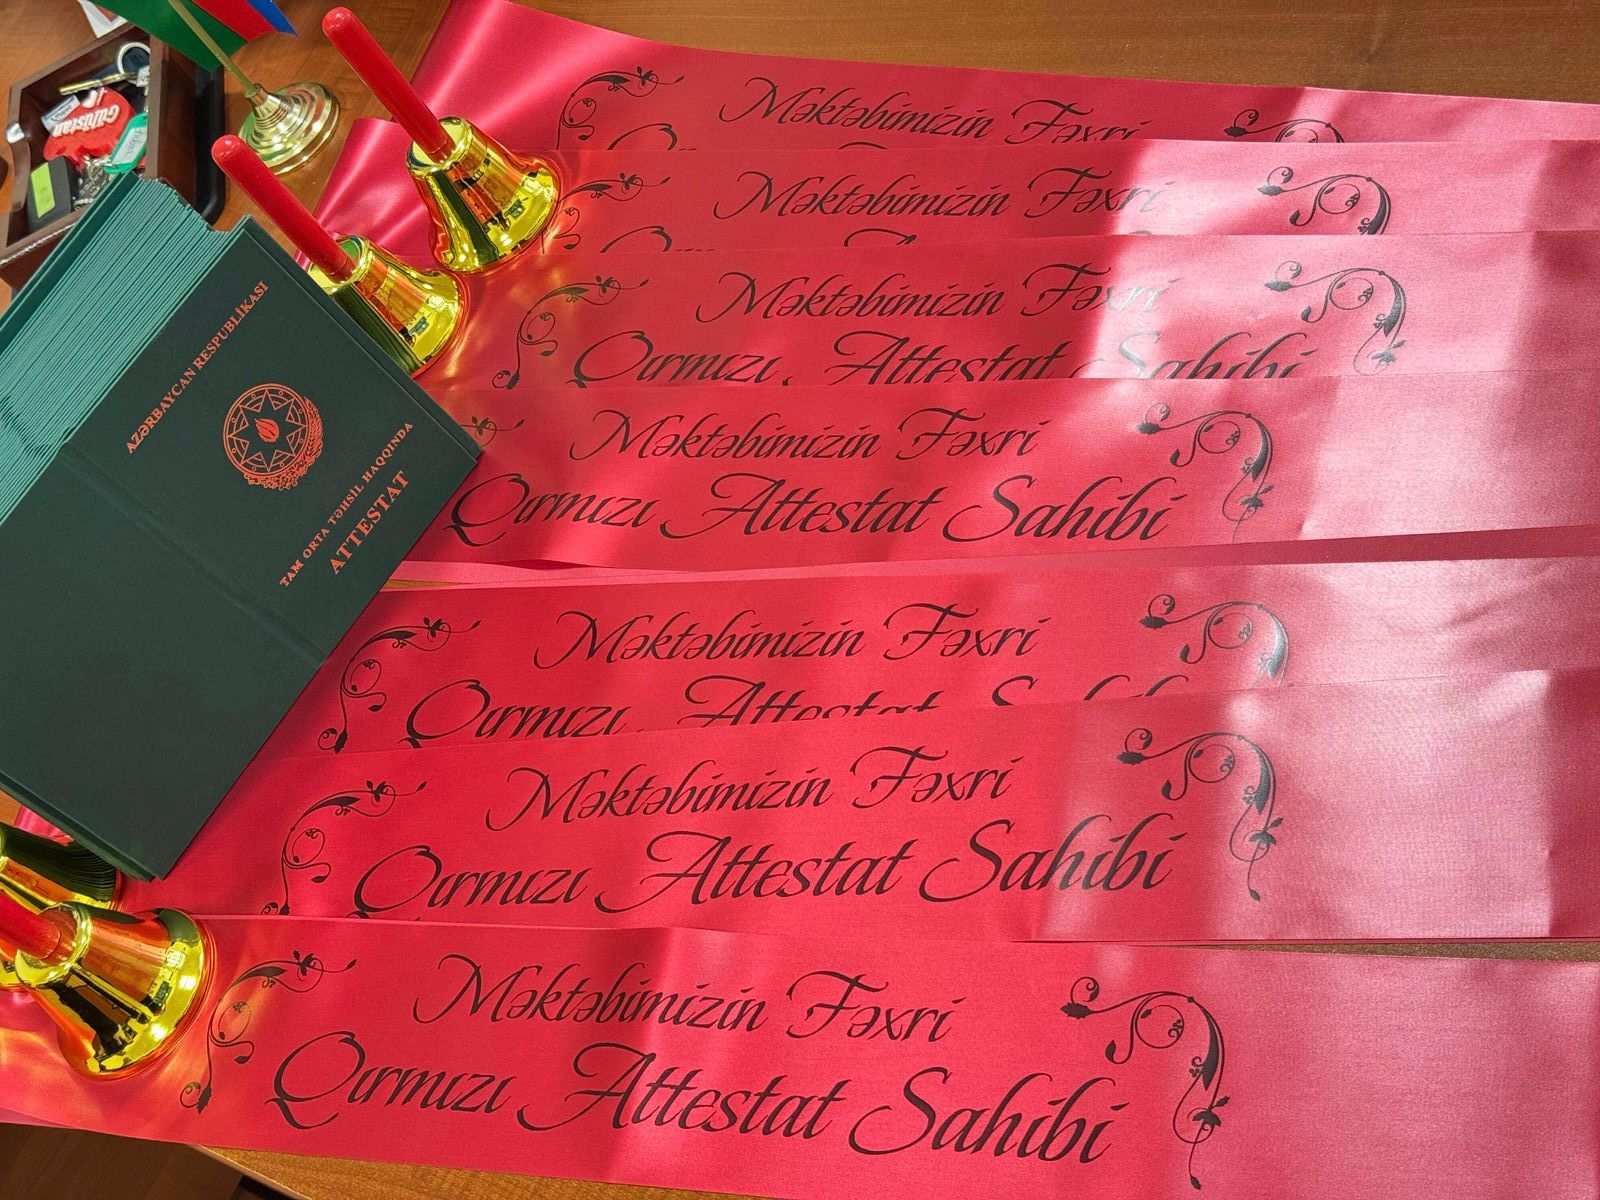 Gülüstan
AZƏRBAYCAN RESPUBLİKASI
TAM ORTA TƏHSİL HAQQINDA
ATTESTAT
Məktəbimizin Fəxri
Məktəbimizin Fəxri
Məktəbimizin Fəxri
Qırmızı Attestat Sahibi
Məktəbimizin Fəxri
Qırmızı Attestat Sahibi
Məktəbimizin Fəxri
Qırmızı Attestat
Məktəbimizin Fəxri
Qırmızı Attestat Sahibi
Məktəbimizin Fəxri
Qırmızı Attestat Sahibi